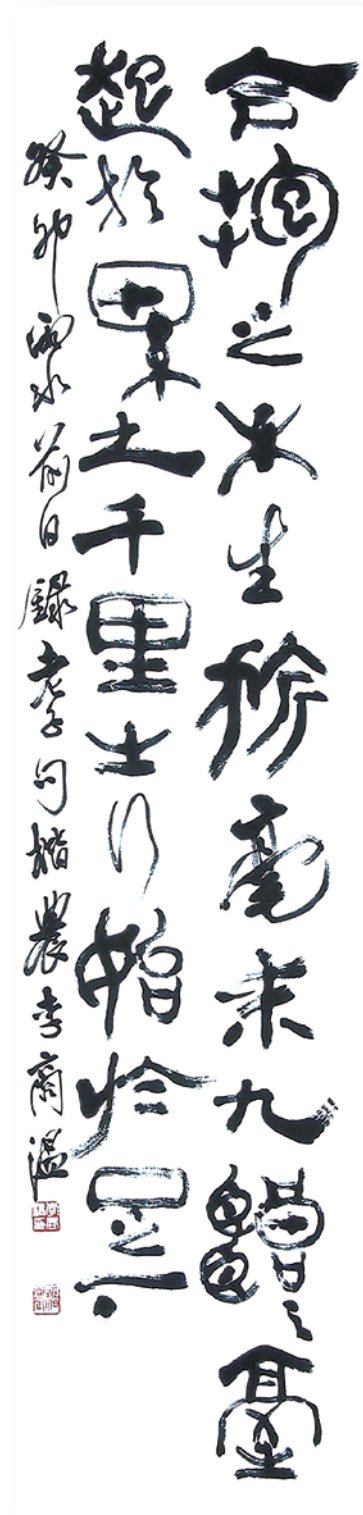 合抱之木生於毫末九層之臺
起於累土千里之行始於足下
癸卯雨水前日錄老子句楷農李商溫